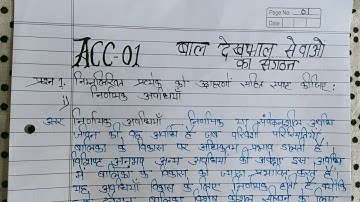 Page No. 01
Date
ACC-01 बाल देखभाल सेवाओं
का संगठन
प्रश्न 1. निम्नलिखित प्रत्येक को उदाहरणों सहित स्पष्ट कीजिए :
i) निर्णायक अवधियाँ
उत्तर निर्णायक अवधियाँ निर्णायक या संवेदनशील अवधि
जीवन की वह अवधि है जब परिवेशी परिस्थितियाँ
बालिका के विकास पर अधिकतम प्रभाव डालती हैं
विशिष्ट अनुभव अन्य अवधियों की अपेक्षा इस अवधि
में बालिका के विकास को ज्यादा प्रभावित करते हैं
यह अवधियाँ विकास के लिए निर्णायक होती हैं क्योंकि